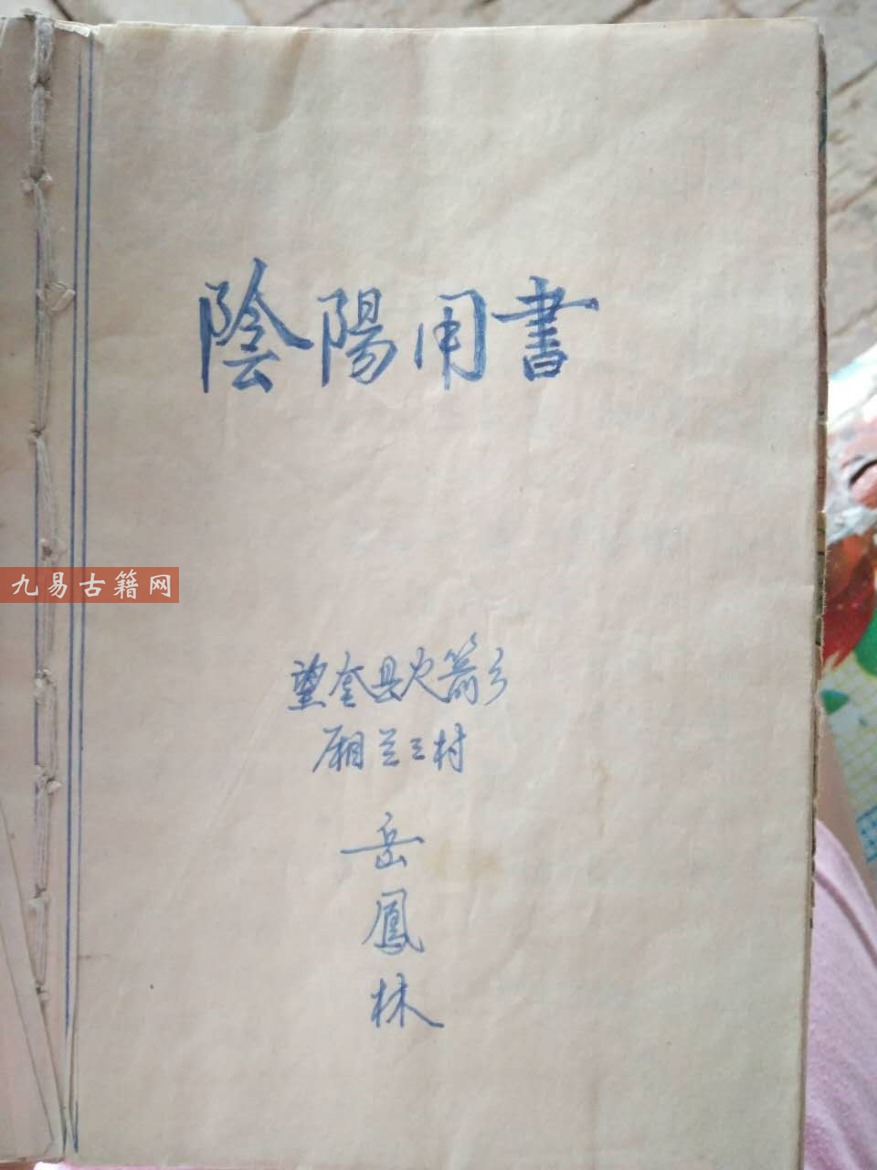 陰陽用書
九易古籍网
望奎县火箭乡
厢兰三村
岳
鳳
林